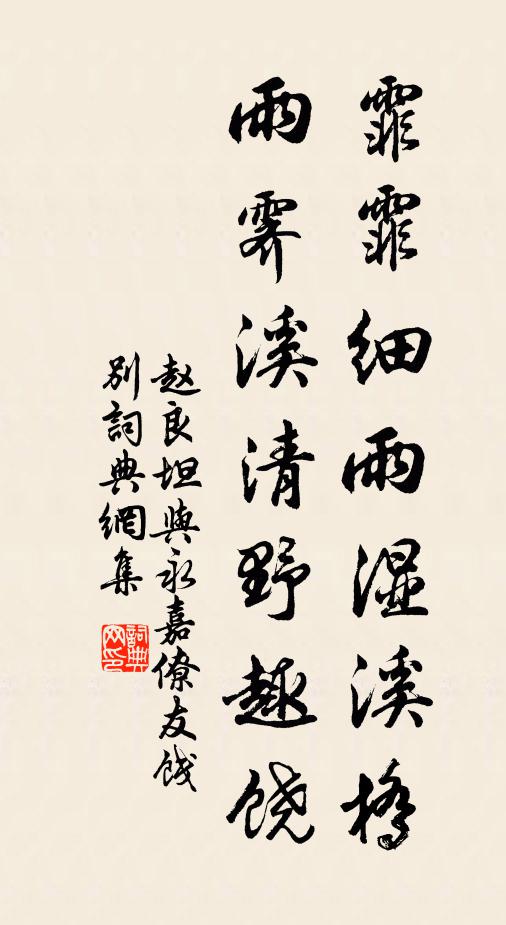 霏霏細雨湿溪橋
雨霁溪清野趣饶
赵良坦與永嘉僚友饯
别詞典網集
詞典
网印